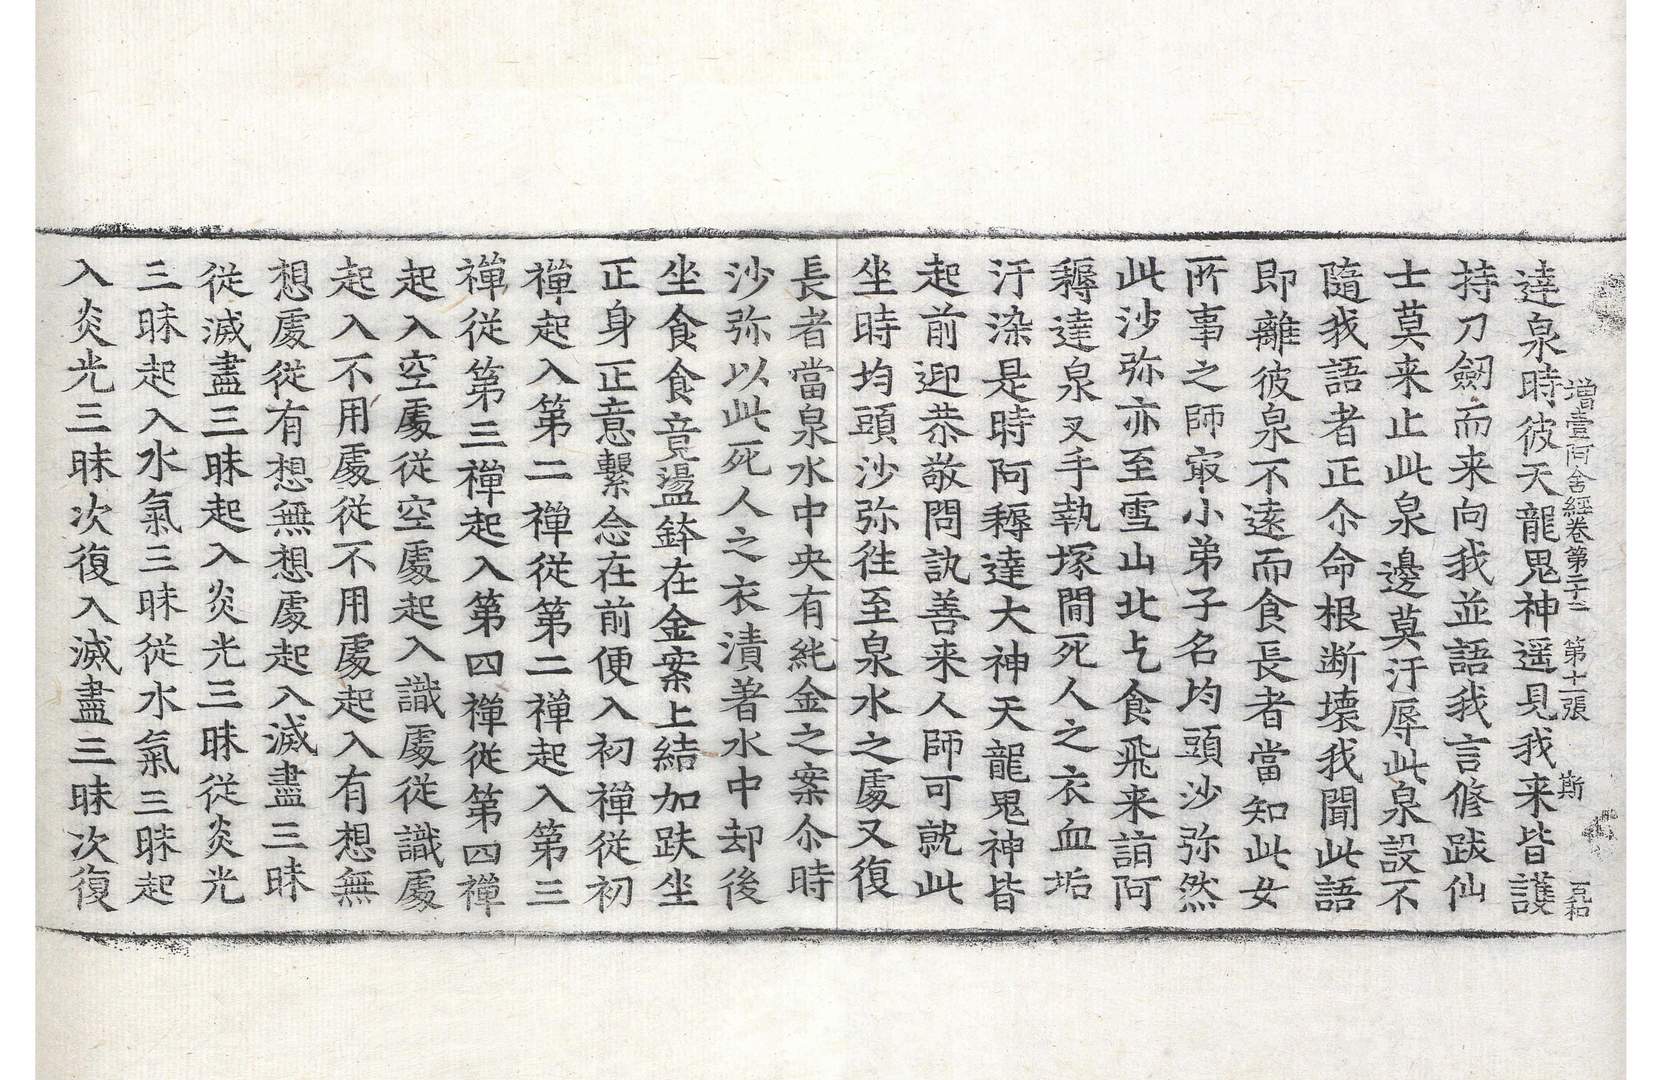 增壹阿含經卷第二十二 第十一張 斯
達泉時彼天龍鬼神遥見我来皆護
持刀劒而来向我並語我言修跋仙
士莫来止此泉邊莫汙辱此泉設不
隨我語者正尒命根断壞我聞此語
即離彼泉不遠而食長者當知此女
所事之師㝡小弟子名均頭沙弥然
此沙弥亦至雪山北乞食飛来詣阿
耨達泉叉手執塚間死人之衣血垢
汙染是時阿耨達大神天龍鬼神皆
起前迎恭敬問訊善来人師可就此
坐時均頭沙弥往至泉水之處又復
長者當泉水中央有純金之案尒時
沙弥以此死人之衣漬著水中却後
坐食食竟盪鉢在金案上結加趺坐
正身正意繫念在前便入初禅從初
禅起入第二禅從第二禅起入第三
禅從第三禅起入第四禅從第四禅
起入空處從空處起入識處從識處
起入不用處從不用處起入有想無
想處從有想無想處起入滅盡三昧
從滅盡三昧起入炎光三昧從炎光
三昧起入水氣三昧從水氣三昧起
入炎光三昧次復入滅盡三昧次復